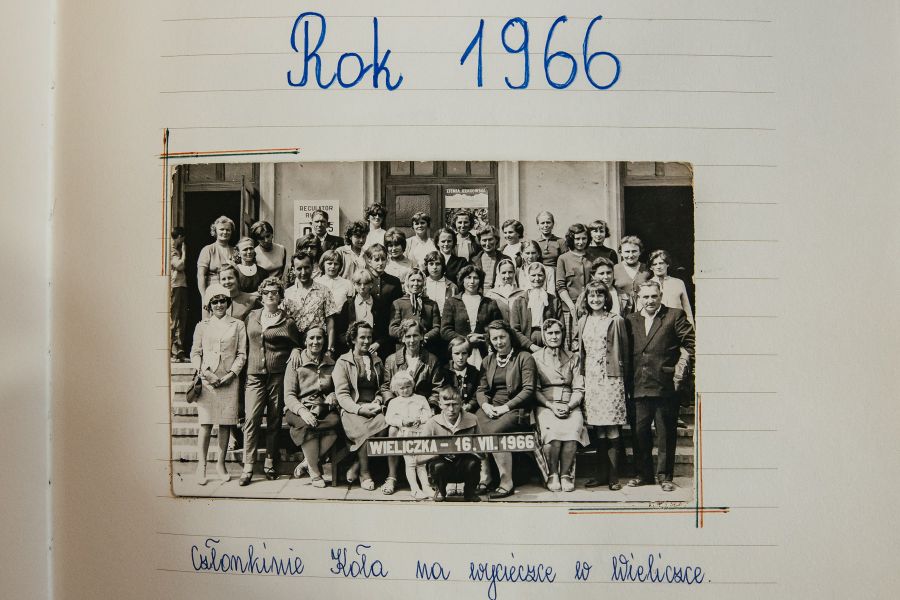 Rok 1966
REGULATOR
WIELICZKA - 16.VII.1966
Członkinie Koła na wycieczce w Wieliczce.